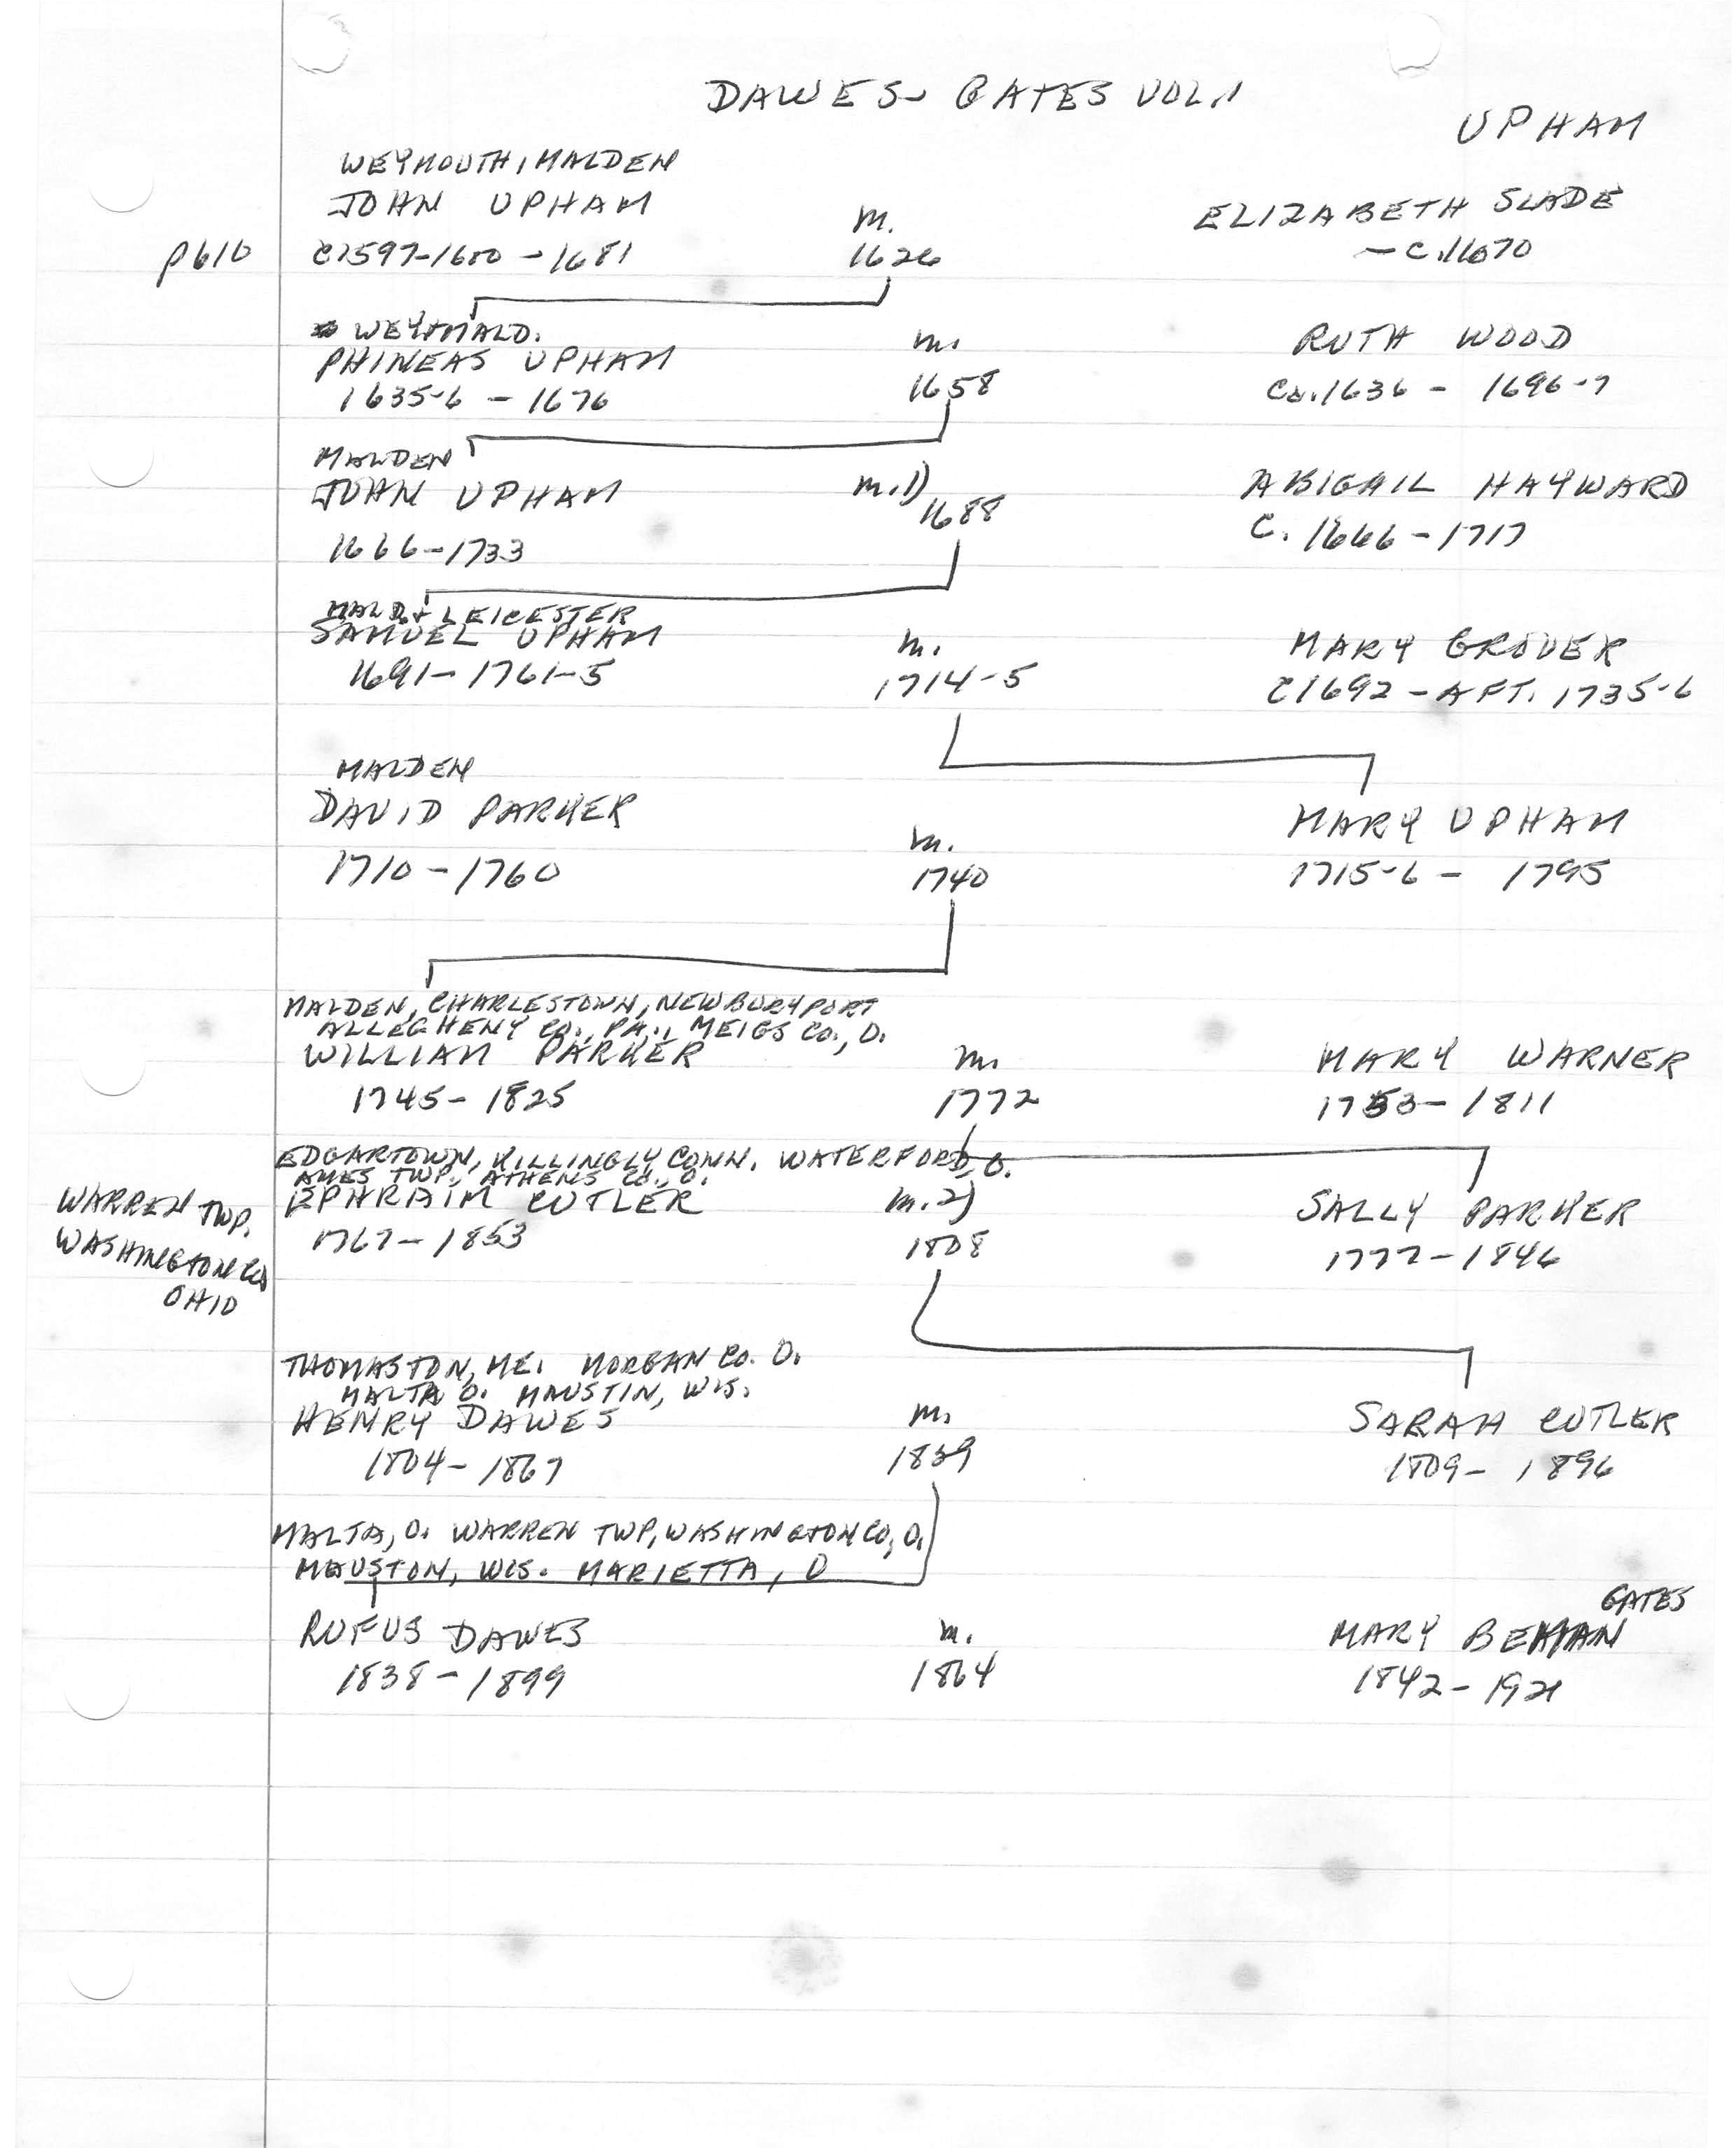 DAWES-GATES VOL. 1
UPHAM
WEYMOUTH, MALDEN
JOHN UPHAM m. ELIZABETH SLADE
p610 C1597-1600 - 1681 1626 - C.1670
WEY+MALD.
PHINEAS UPHAM m. RUTH WOOD
1635-6 - 1676 1658 Ca.1636 - 1696-7
MALDEN
JOHN UPHAM m.1) ABIGAIL HAYWARD
1666-1733 1688 C. 1666-1717
MALD.+LEICESTER
SAMUEL UPHAM m. MARY GROVER
1691-1761-5 1714-5 C1692-AFT. 1735-6
MALDEN
DAVID PARKER m. MARY UPHAM
1710-1760 1740 1715-6 - 1795
MALDEN, CHARLESTOWN, NEWBURYPORT
ALLEGHENY CO., PA., MEIGS CO., O.
WILLIAM PARKER m. MARY WARNER
1745-1825 1772 1753-1811
EDGARTOWN, KILLINGLY CONN. WATERFORD, O.
AMES TWP., ATHENS CO., O.
EPHRAIM CUTLER m.2) SALLY PARKER
1767-1853 1808 1777-1846
WARREN TWP.
WASHINGTON CO
OHIO
THOMASTON, ME. MORGAN CO. O.
MALTA O. MAUSTIN, WIS.
HENRY DAWES m. SARAH CUTLER
1804-1867 1839 1809-1896
MALTA, O. WARREN TWP, WASHINGTON CO, O.
MAUSTON, WIS. MARIETTA, O
GATES
RUFUS DAWES m. MARY BEMAN
1838-1899 1864 1842-1921